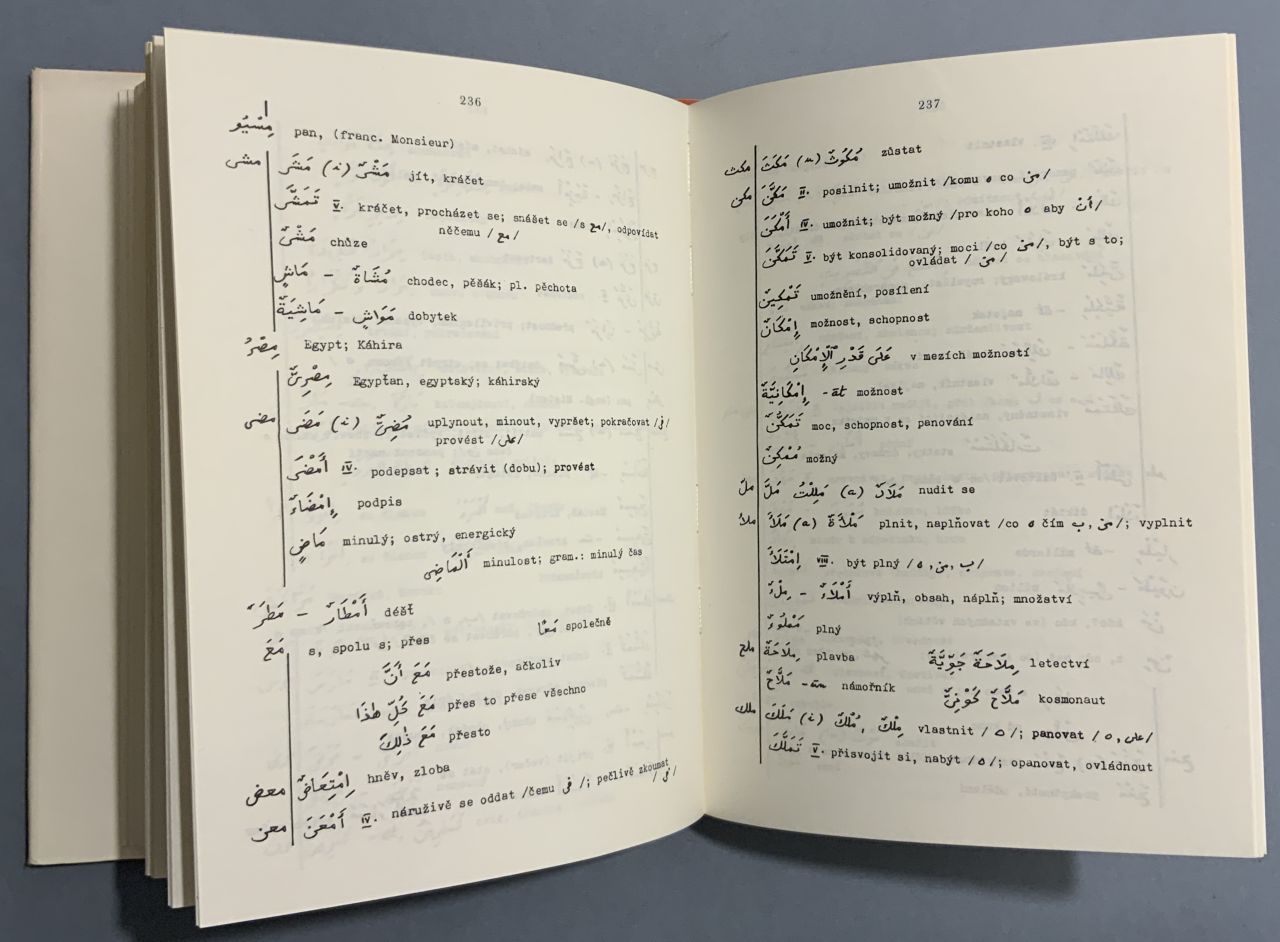 236
مِسْيُو pan, (franc. Monsieur)
مشى مَشَى (i) مَشْىٌ jít, kráčet
تَمَشَّى V. kráčet, procházet se; snášet se /s مع/, odpovídat
něčemu /مع/
مَشْىٌ chůze
مَاشٍ – مُشَاةٌ chodec, pěšák; pl. pěchota
مَاشِيَةٌ – مَوَاشٍ dobytek
مِصْرُ Egypt; Káhira
مِصْرِىٌّ Egypťan, egyptský; káhirský
مضى مَضَى (i) مُضِىٌّ uplynout, minout, vypršet; pokračovat /فى/
provést /على/
أَمْضَى IV. podepsat; strávit (dobu); provést
إِمْضَاءٌ podpis
مَاضٍ minulý; ostrý, energický
أَلْمَاضِى minulost; gram.: minulý čas
مَطَرٌ – أَمْطَارٌ déšť
مَعَ s, spolu s; přes مَعًا společně
مَعَ أَنَّ přestože, ačkoliv
مَعَ كُلِّ هٰذَا přes to přese všechno
مَعَ ذٰلِكَ přesto
معض اِمْتِعَاضٌ hněv, zloba
معن أَمْعَنَ IV. náruživě se oddat /čemu فى/; pečlivě zkoumat
/فى/
237
مكث مَكَثَ (u) مُكُوثٌ zůstat
مكن مَكَّنَ II. posilnit; umožnit /komu ه co من/
أَمْكَنَ IV. umožnit; být možný /pro koho ه aby أَنْ/
تَمَكَّنَ V. být konsolidovaný; moci /co من/, být s to;
ovládat /من/
تَمْكِينٌ umožnění, posílení
إِمْكَانٌ možnost, schopnost
عَلَى قَدْرِ ٱلْإِمْكَانِ v mezích možností
إِمْكَانِيَّةٌ -āt možnost
تَمَكُّنٌ moc, schopnost, panování
مُمْكِنٌ možný
ملّ مَلَّ مَلِلْتُ (a) مَلَلٌ nudit se
ملأ مَلَأَ (a) مَلْأَةٌ plnit, naplňovat /co ه čím ب, من/; vyplnit
اِمْتَلَأَ VIII. být plný /ب, من, ه/
مِلْءٌ – أَمْلَاءٌ výplň, obsah, náplň; množství
مَمْلُوءٌ plný
ملح مِلَاحَةٌ plavba مِلَاحَةٌ جَوِّيَّةٌ letectví
مَلَّاحٌ -ūn námořník مَلَّاحٌ كَوْنِىٌّ kosmonaut
ملك مَلَكَ (i) مُلْكٌ, مِلْكٌ vlastnit /ه/; panovat /ه, على/
تَمَلَّكَ V. přisvojit si, nabýt /ه/; opanovat, ovládnout